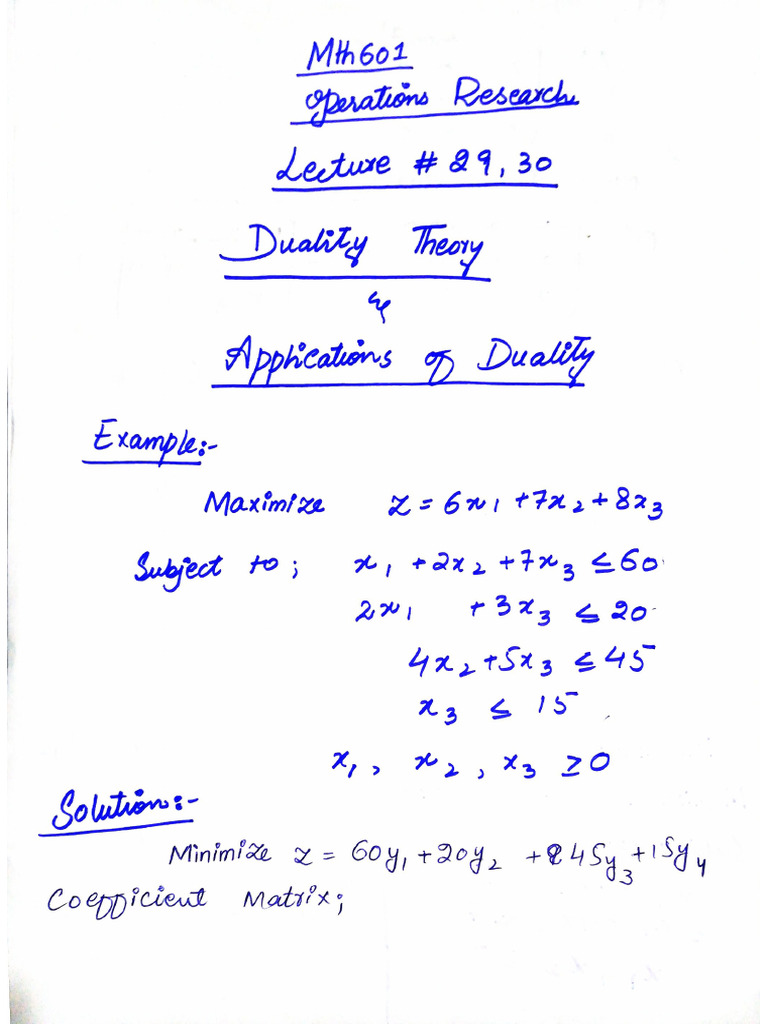 Mth601
Operations Research
Lecture # 29, 30
Duality Theory
&
Applications of Duality
Example:-
Maximize z = 6x₁ + 7x₂ + 8x₃
Subject to; x₁ + 2x₂ + 7x₃ ≤ 60
2x₁ + 3x₃ ≤ 20
4x₂ + 5x₃ ≤ 45
x₃ ≤ 15
x₁, x₂, x₃ ≥ 0
Solution:-
Minimize z = 60y₁ + 20y₂ + 45y₃ + 15y₄
Coefficient Matrix;